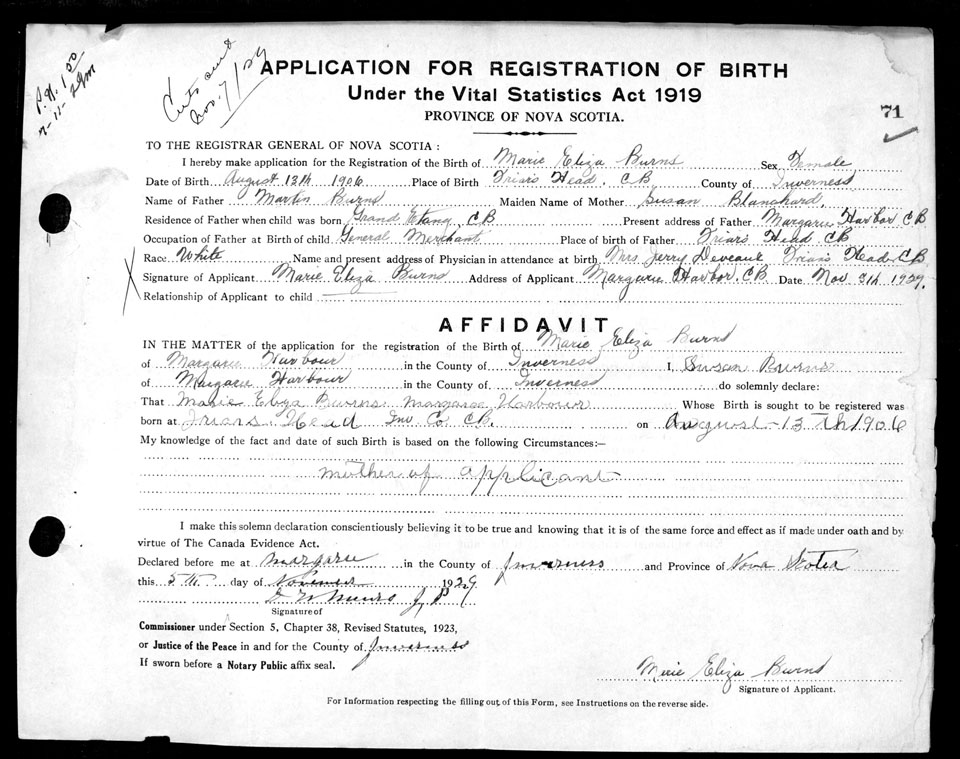 P.N. 1.00
7-11-29 M
Cert sent
Nov. 7/29
APPLICATION FOR REGISTRATION OF BIRTH
Under the Vital Statistics Act 1919
PROVINCE OF NOVA SCOTIA.
71
TO THE REGISTRAR GENERAL OF NOVA SCOTIA :
I hereby make application for the Registration of the Birth of Marie Eliza Burns Sex Female
Date of Birth August 13th 1906 Place of Birth Friars Head, CB County of Inverness
Name of Father Martin Burns Maiden Name of Mother Susan Blanchard
Residence of Father when child was born Grand Etang, CB Present address of Father Margaree Harbor CB
Occupation of Father at Birth of child General Merchant Place of birth of Father Friars Head, CB
Race White Name and present address of Physician in attendance at birth Mrs Jerry Deveaux Friars Head CB
Signature of Applicant Marie Eliza Burns Address of Applicant Margaree Harbor, CB Date Nov 5th 1929.
Relationship of Applicant to child
AFFIDAVIT
IN THE MATTER of the application for the registration of the Birth of Marie Eliza Burns
of Margaree Harbour in the County of Inverness I, Susan Burns
of Margaree Harbour in the County of Inverness do solemnly declare:
That Marie Eliza Burns Margaree Harbour Whose Birth is sought to be registered was
born at Friars Head Inv Co. CB. on August-13 th 1906
My knowledge of the fact and date of such Birth is based on the following Circumstances:—
mother of applicant
I make this solemn declaration conscientiously believing it to be true and knowing that it is of the same force and effect as if made under oath and by
virtue of The Canada Evidence Act.
Declared before me at Margaree in the County of Inverness and Province of Nova Scotia
this 5th day of November 1929
Munro J P
Signature of
Commissioner under Section 5, Chapter 38, Revised Statutes, 1923,
or Justice of the Peace in and for the County of Inverness
If sworn before a Notary Public affix seal.
Marie Eliza Burns
Signature of Applicant.
For Information respecting the filling out of this Form, see Instructions on the reverse side.